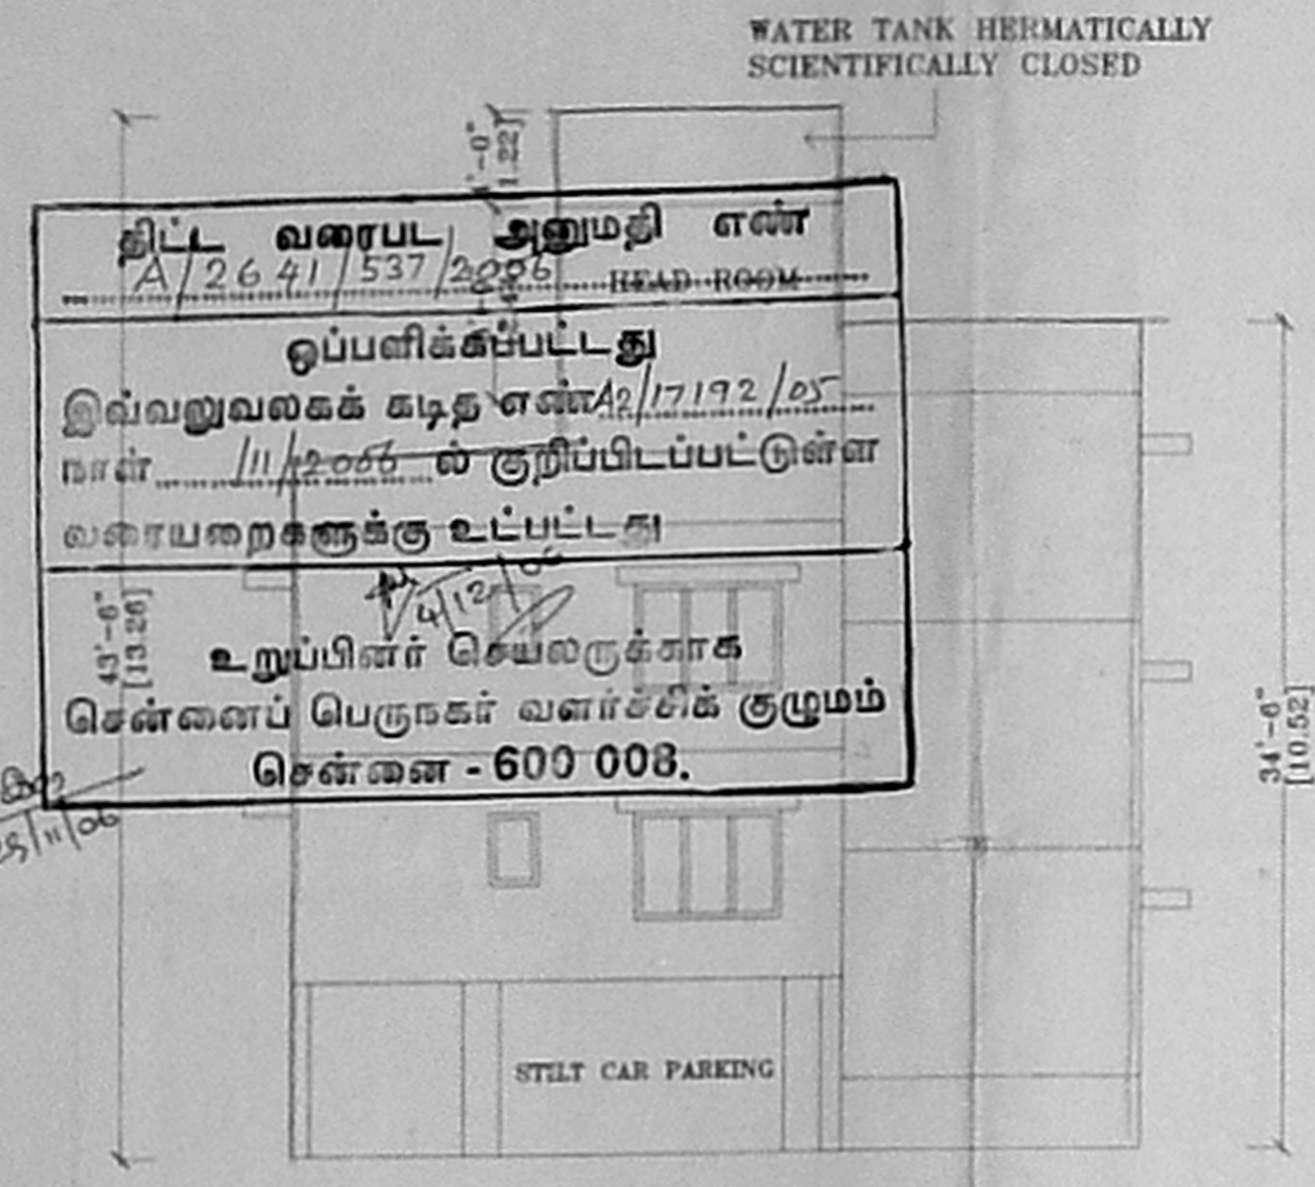 WATER TANK HERMATICALLY
SCIENTIFICALLY CLOSED
4'-0"
1.22]
திட்ட வரைபட அனுமதி எண்
A/2641/537/2006
HEAD ROOM
ஒப்பளிக்கப்பட்டது
இவ்வலுவலகக் கடித எண் A2/17192/05
நாள் /11/2006 ல் குறிப்பிடப்பட்டுள்ள
வரையறைகளுக்கு உட்பட்டது
4/12/06
43'-6"
[13.26]
உறுப்பினர் செயலருக்காக
சென்னைப் பெருநகர் வளர்ச்சிக் குழுமம்
சென்னை - 600 008.
34'-6"
[10.52]
/11/06
STILT CAR PARKING